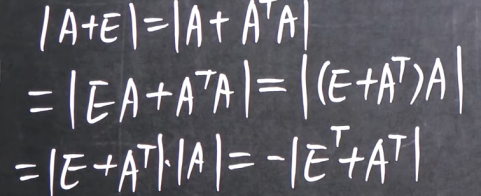 |A+E|=|A+AᵀA|
=|EA+AᵀA|=|(E+Aᵀ)A|
=|E+Aᵀ|·|A|=-|Eᵀ+Aᵀ|